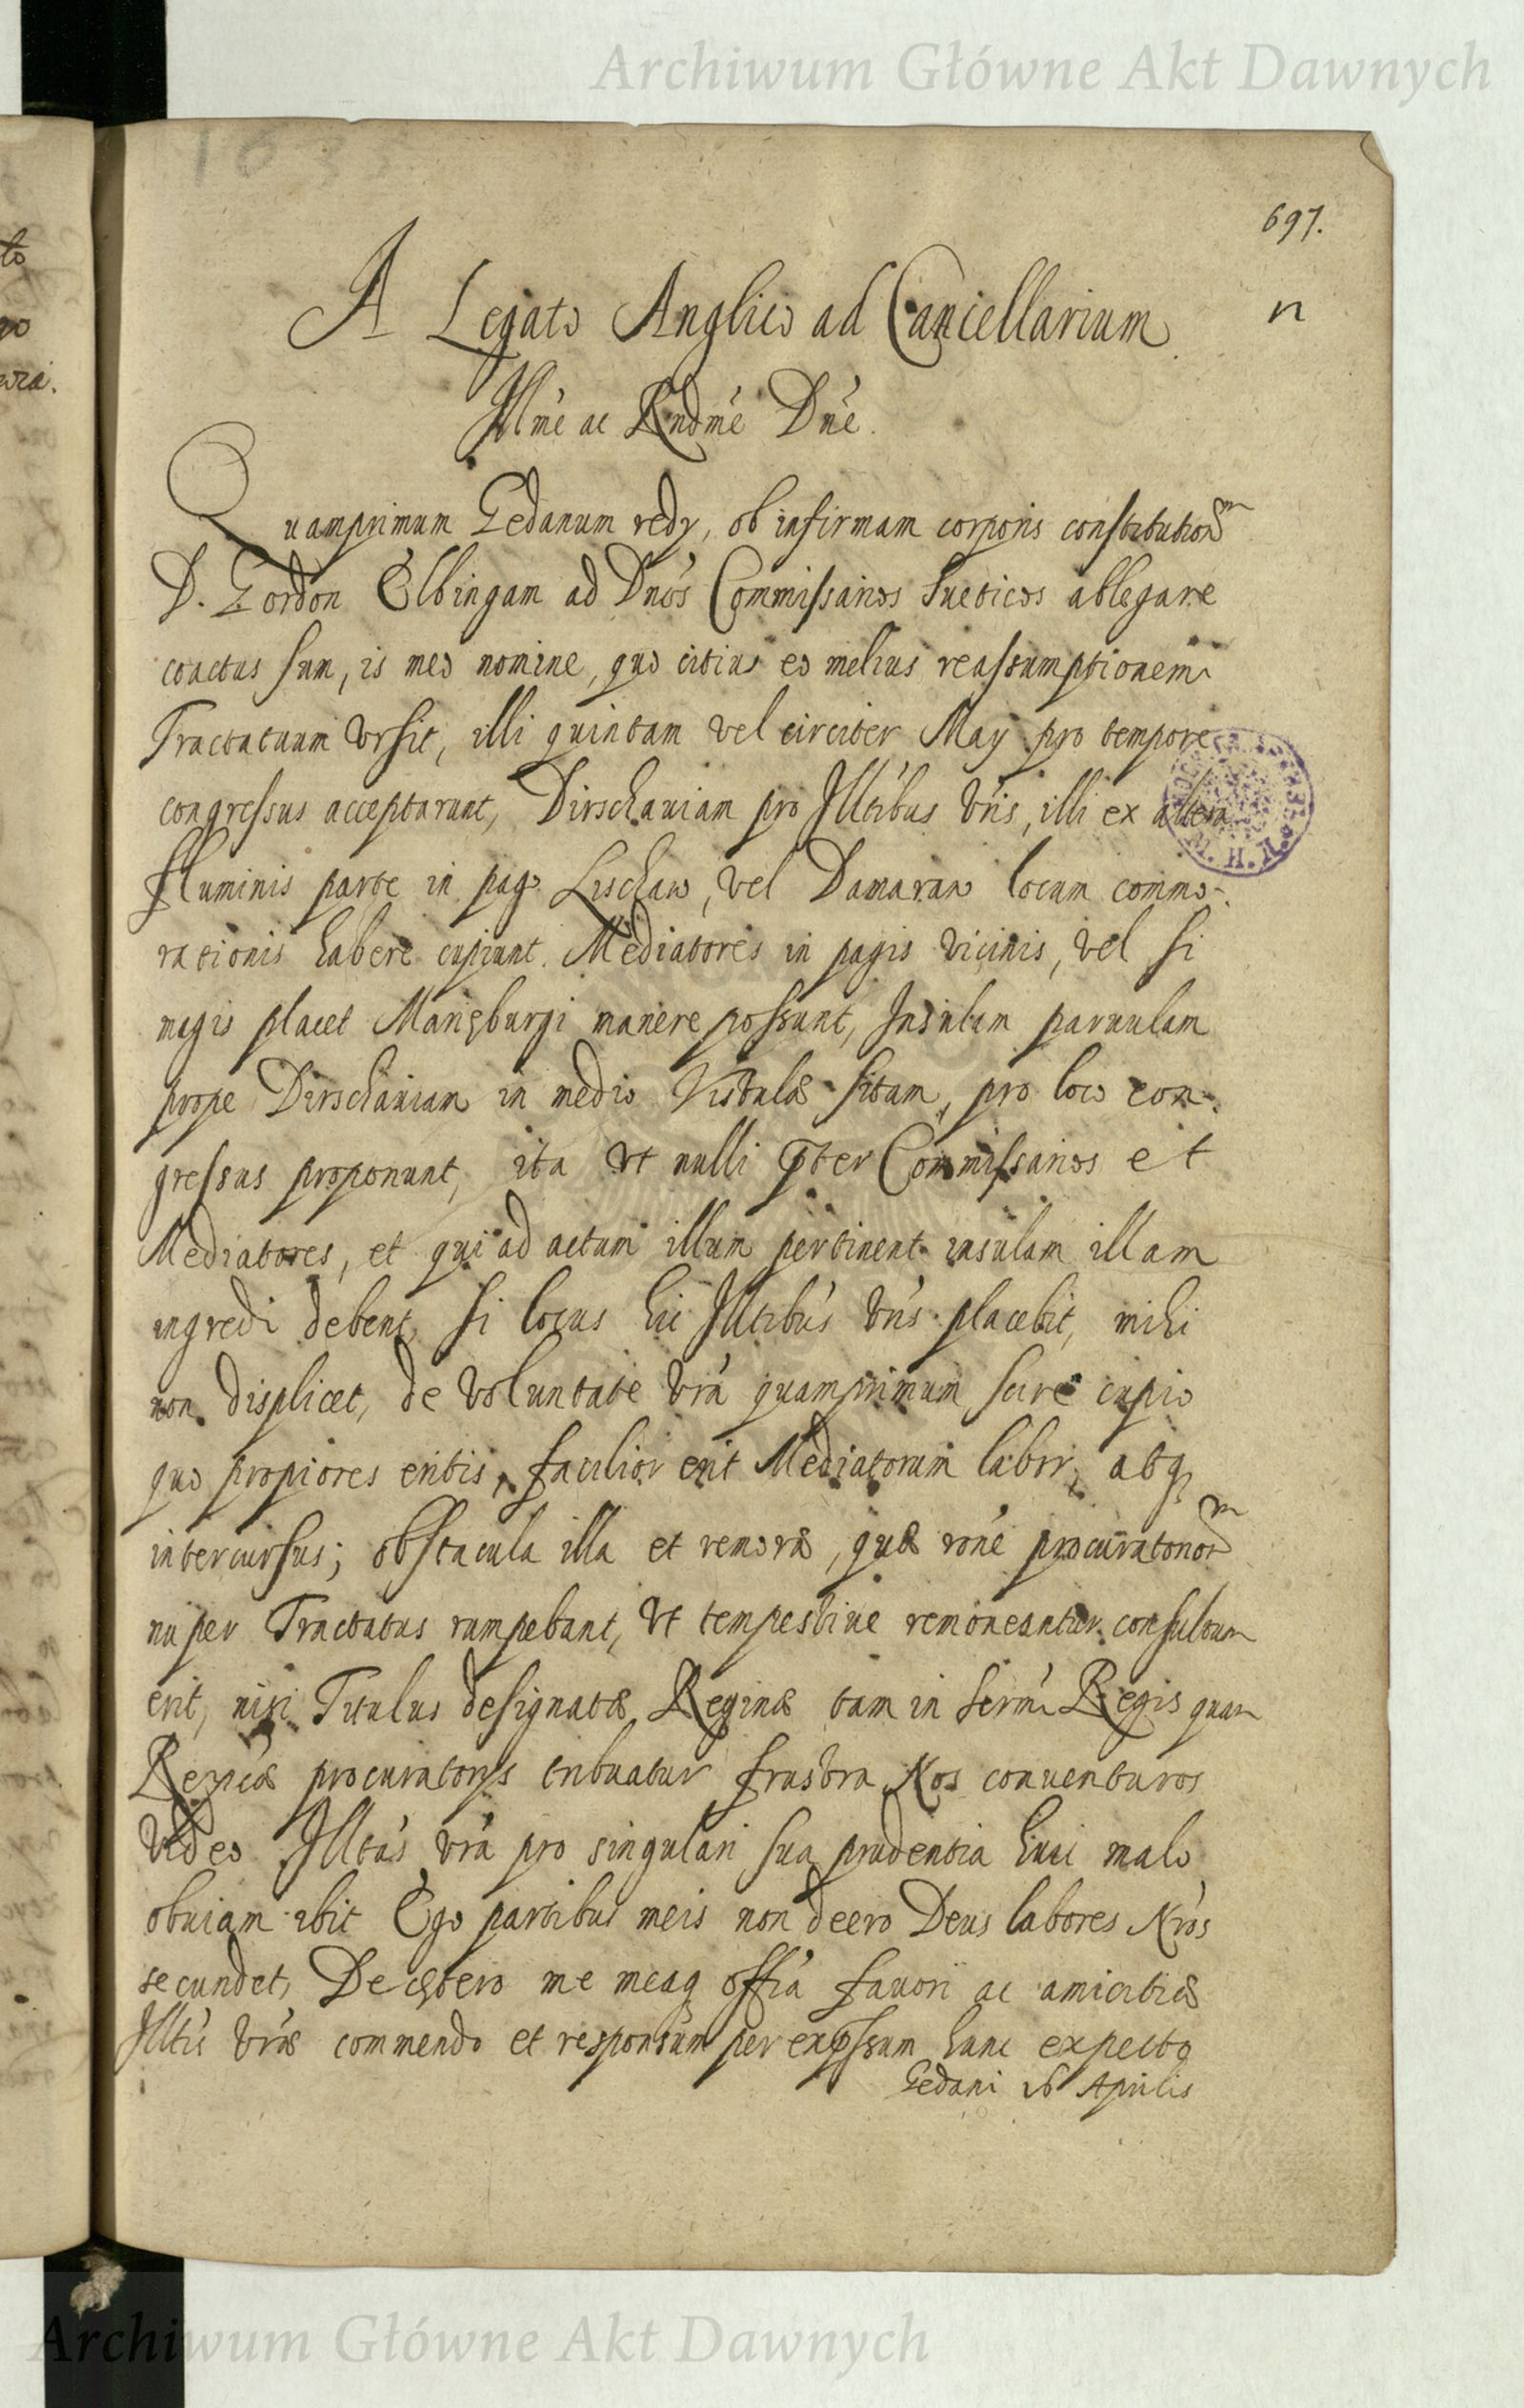 Archiwum Główne Akt Dawnych
697.
n
A Legato Anglico ad Cancellarium
Illme ac Rndme Dne.
Quamprimum Gedanum redy, ob infirmam corporis constitutionem
D. Gordon Elbingam ad Dnos Commissarios Sueticos ablegare
coactus sum, is meo nomine, quo citius eo melius reassumptionem
Tractatuum ursit, illi quintam vel circiter May pro tempore
congressus acceptarunt, Dirschaviam pro Illtibus Vris, illi ex altera
fluminis parte in pago Lischaw, vel Damaraw locum commo-
rationis habere cupiunt. Mediatores in pagis vicinis, vel si
magis placet Mariæburgi manere possunt, Insulam parvulam
prope Dirschaviam in medio Vistulæ sitam, pro loco con-
gressus proponunt, ita ut nulli pter Commissarios et
Mediatores, et qui ad actum illum pertinent insulam illam
ingredi debent, si locus hic Illtibus Vris placebit, mihi
non displicet, de voluntate Vra quamprimum scire cupio
quo propiores eritis, facilior erit Mediatorum labor, atq
intercursus; obstacula illa et remoræ, quæ rone procuratoriorum
nuper Tractatus rumpebant, ut tempestive removeantur consultum
erit, nisi Titulus designatæ Reginæ tam in Sermi Regis quam
Regniæ procuratorys tribuatur frustra Nos conventuros
video Illtas Vra pro singulari sua prudentia huic malo
obviam ibit Ego partibus meis non deero Deus labores Nros
secundet, De cætero me meaq offia favori ac amicitiæ
Illtis Vræ commendo et responsum per expssum hunc expecto
Gedani 26 Aprilis
Archiwum Główne Akt Dawnych